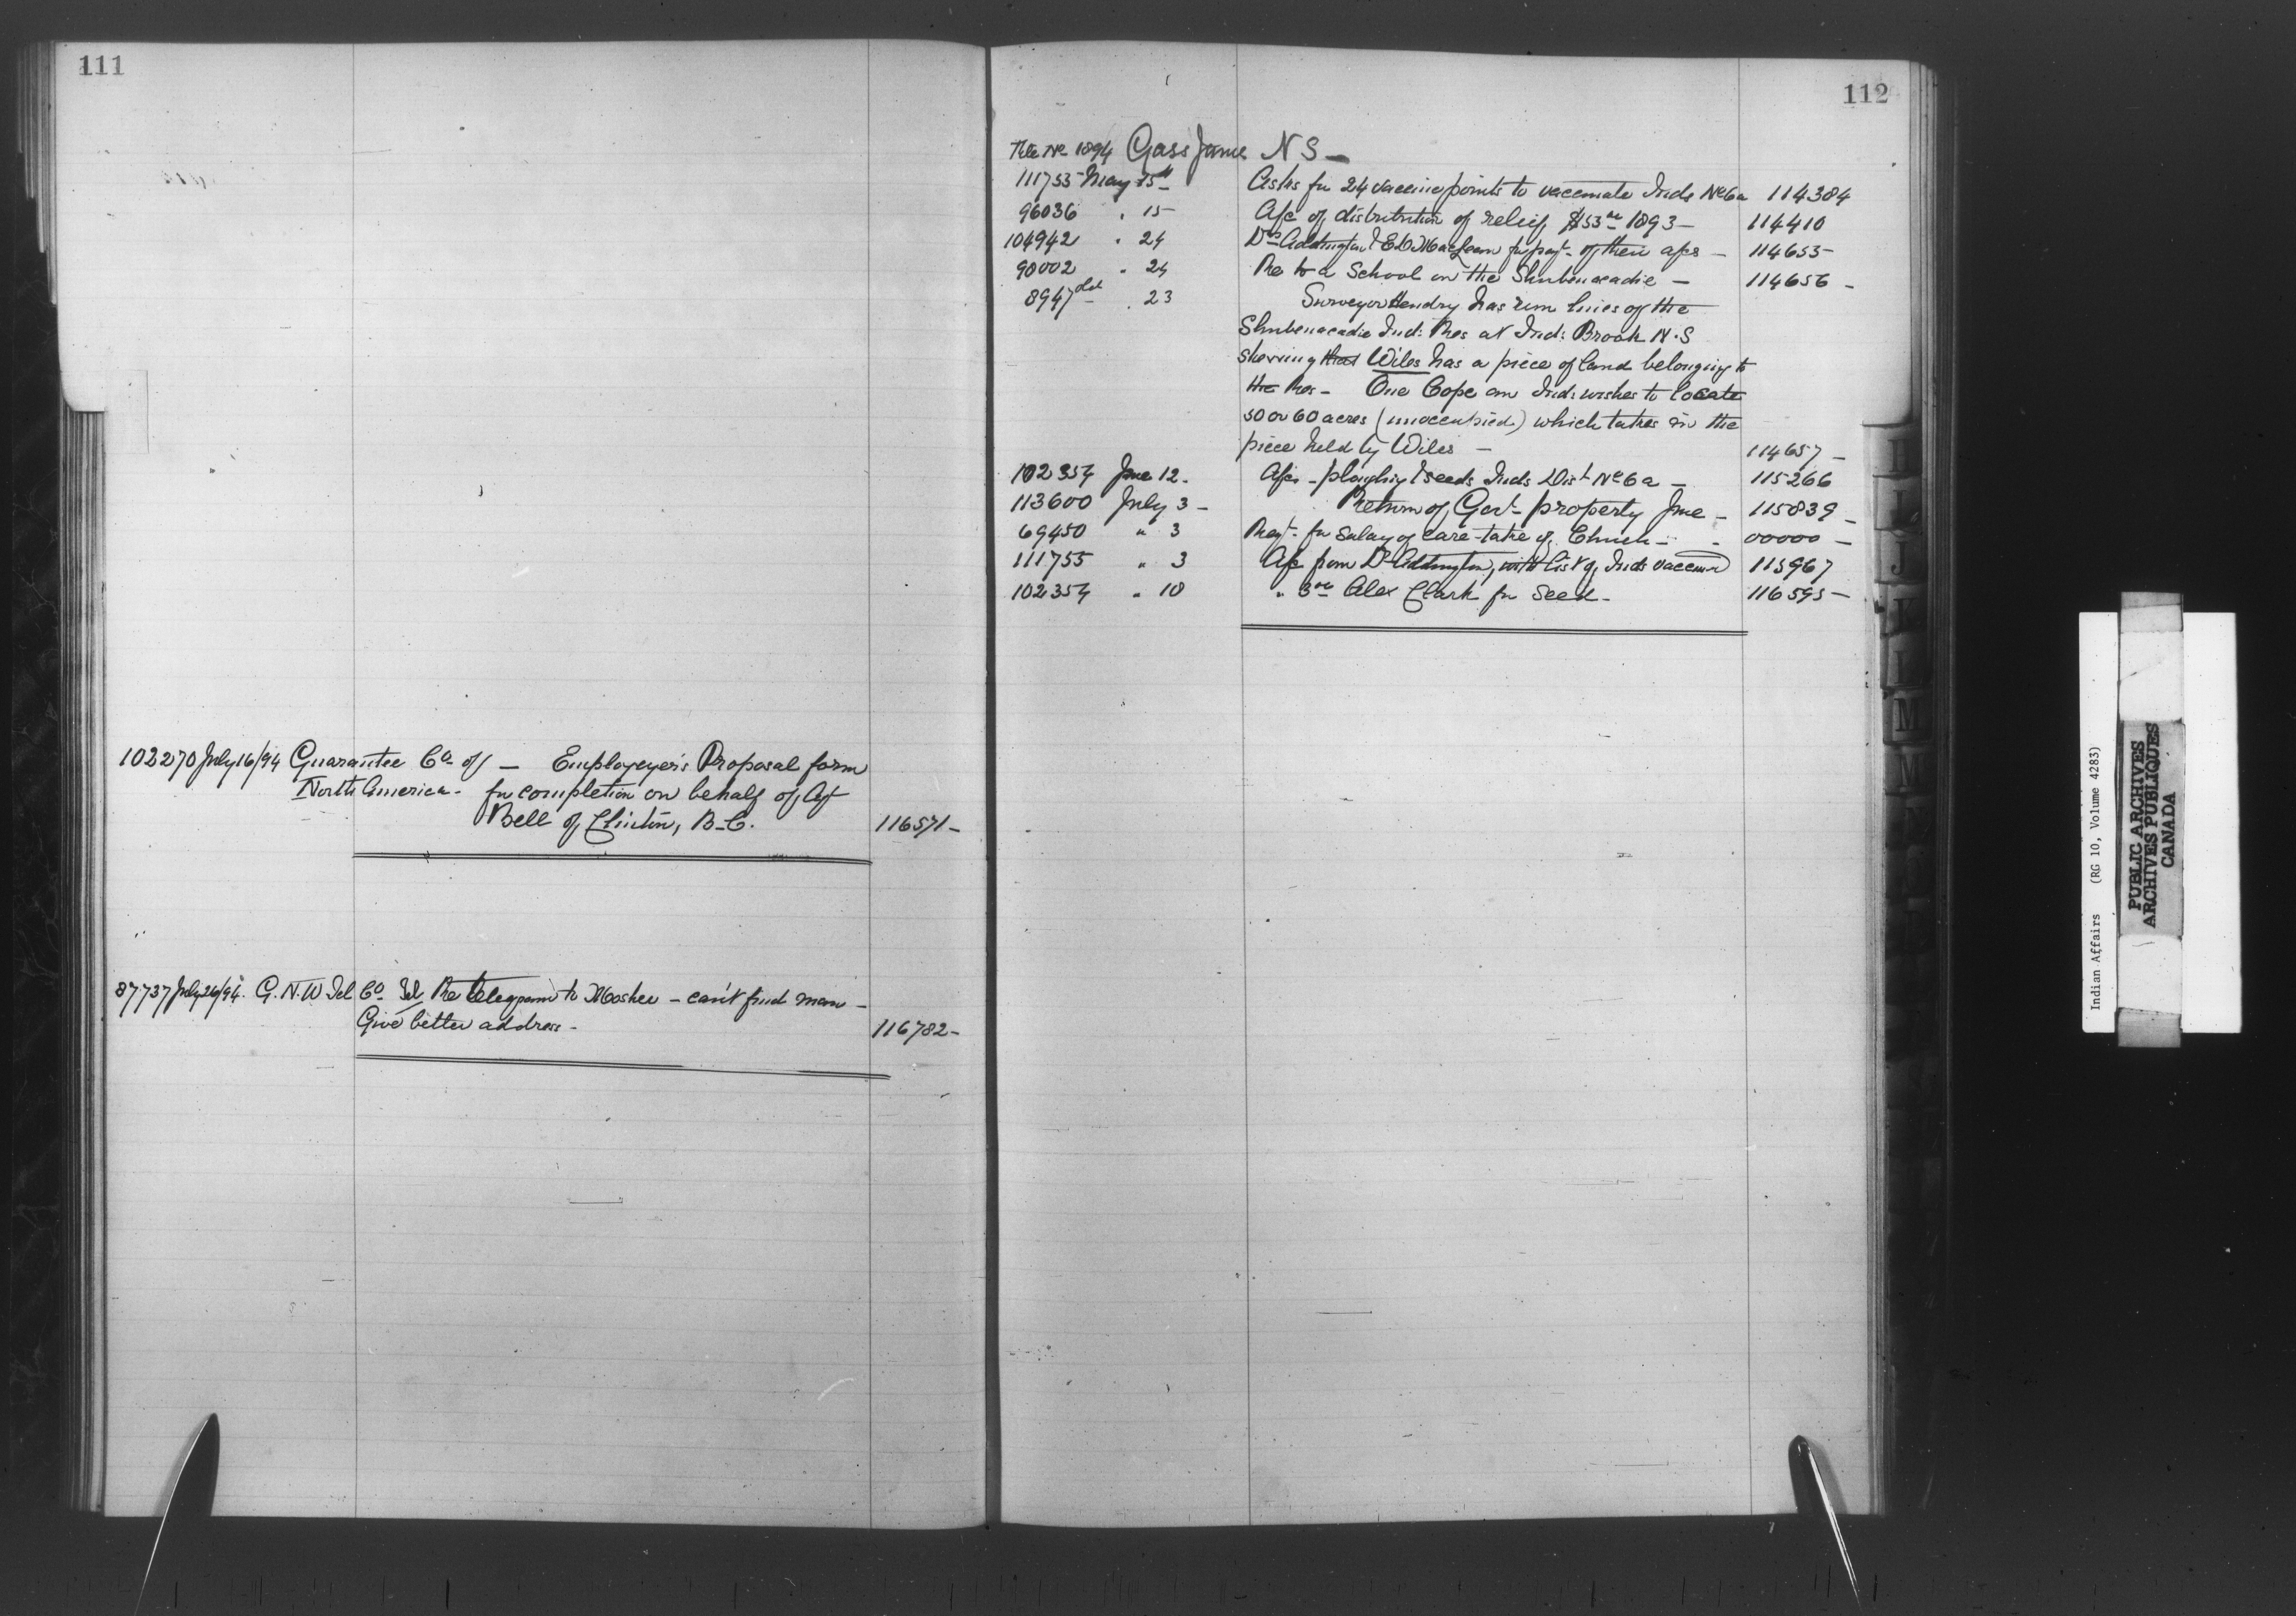 111
102270 July 16/94 Guarantee Co. of — Employeyer's Proposal form
North America - for completion on behalf of Agt
Bell of Clinton, B.C. 116571 -
87737 July 26/94. G.N.W Tel Co. Tel Re telegram to Mosher - can't find man -
Give better address - 116782 -
112
File No 1894 Gass James N S -
111755 May 15th Asks for 24 vaccine points to vaccinate Inds No 6a 114384
96036 " 15 A/c of distribution of relief $53.00 1893 - 114410
104942 " 24 Drs Addington & E.D. MacLean for payt. of their a/cs - 114655
90002 " 24 Re to a School on the Shubenacadie - 114656 -
8947 old " 23 Surveyor Hendry has run lines of the
Shubenacadie Ind: Res at Ind: Brook N.S
showing that Wiles has a piece of land belonging to
the Res - One Cope an Ind: wishes to locate
50 or 60 acres (unoccupied) which takes in the
piece held by Wiles - 114657 -
102354 June 12 - A/cs - ploughing & seeds Inds Dist No 6a - 115266
113600 July 3 - Return of Govt. property June - 115839 -
69450 " 3 Reqt. for salary of care-take of Church - 00000 -
111755 " 3 A/c from Dr Addington, with list of Inds vaccind 115967
102354 " 10 " Alex Clark for Seed - 116595 -
Indian Affairs (RG 10, Volume 4283)
PUBLIC ARCHIVES
ARCHIVES PUBLIQUES
CANADA
I
J
K
L
M